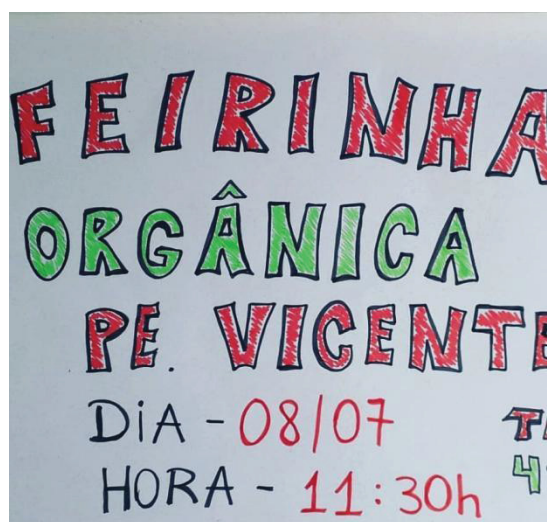 FEIRINHA
ORGÂNICA
PE. VICENTE
DIA - 08/07
HORA - 11:30h